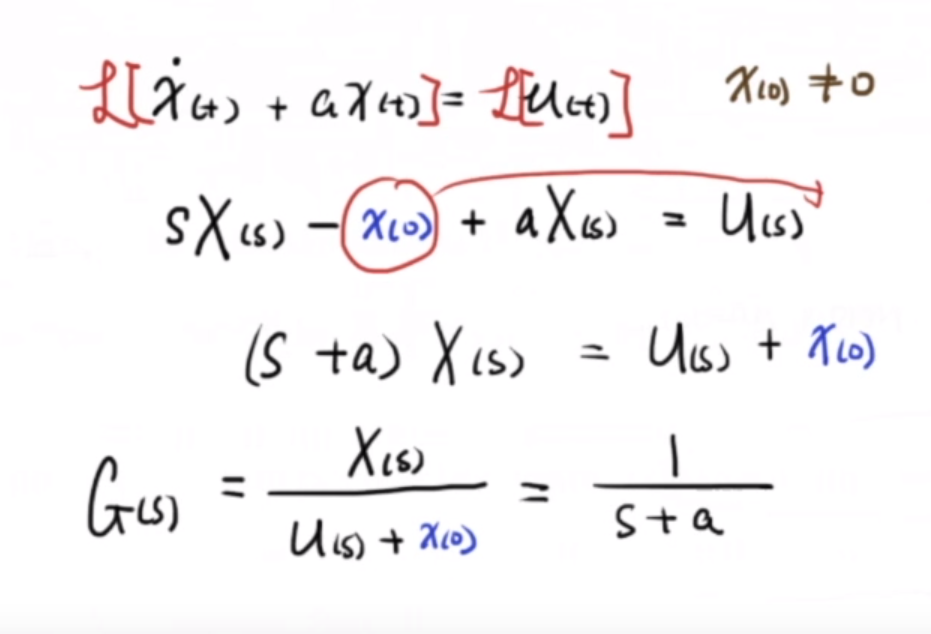 ℒ[ẋ(t) + ax(t)] = ℒ[u(t)] x(0) ≠ 0
sX(s) − x(0) + aX(s) = U(s)
(s + a) X(s) = U(s) + x(0)
G(s) = X(s) / (U(s) + x(0)) = 1 / (s + a)